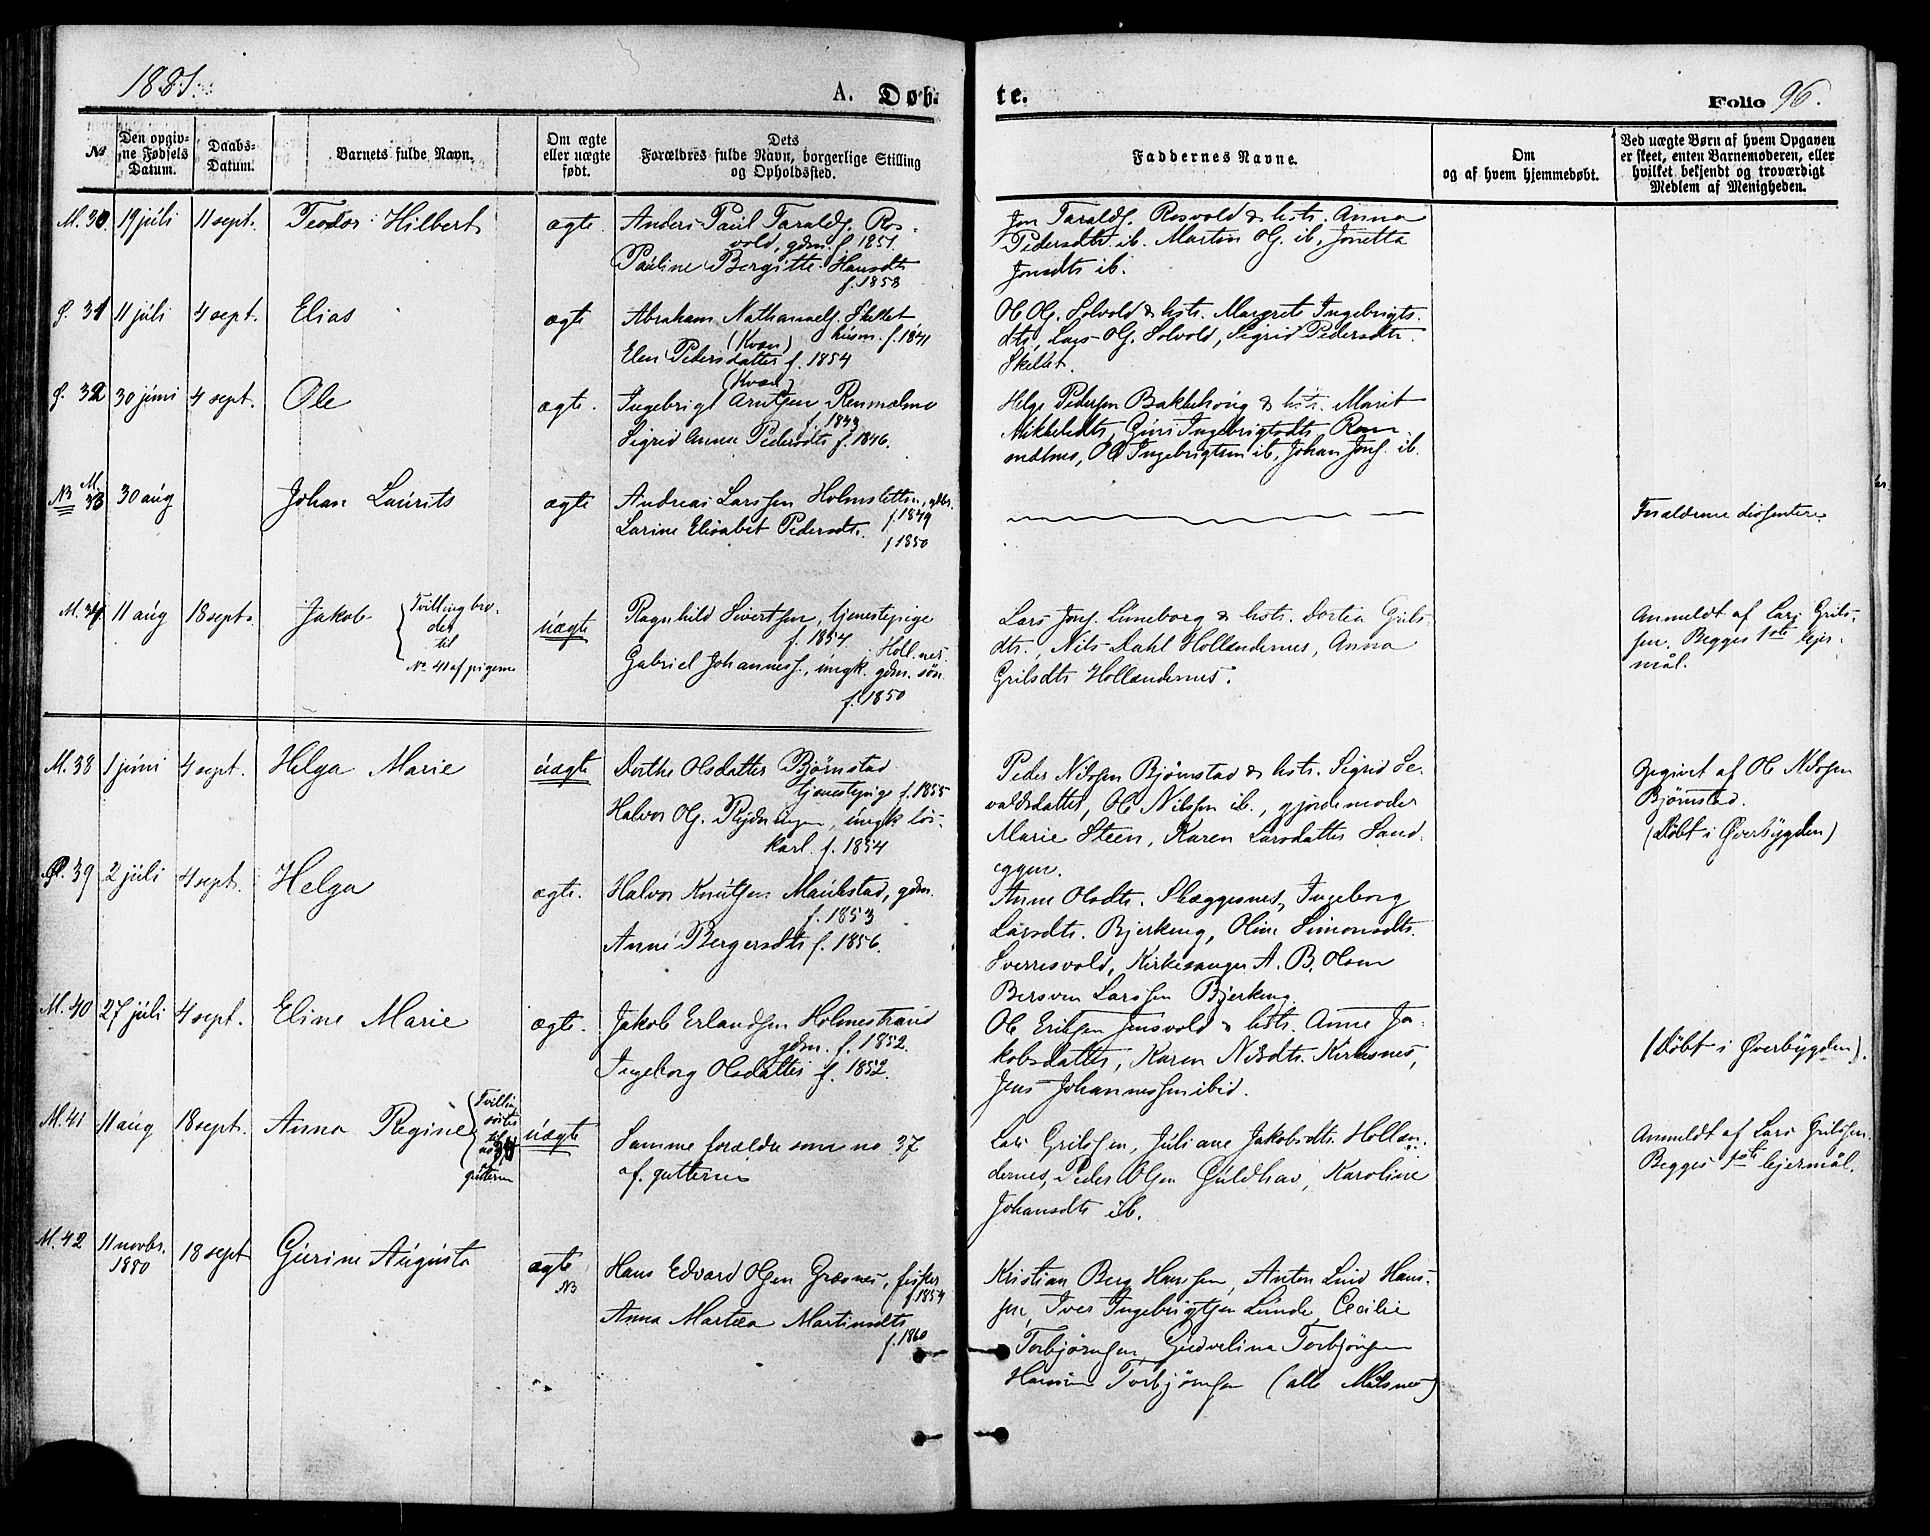 1881.
A. Døb-
te.
Folio 96.
№
Den opgiv-
ne Fødsels
Datum.
Daabs-
Datum.
Barnets fulde Navn.
Om ægte
eller uægte
født.
Dets
Forældres fulde Navn, borgerlige Stilling
og Opholdssted.
Faddernes Navne.
Om
og af hvem hjemmedøbt.
Ved uægte Børn af hvem Opgaven
er skeet, enten Barnemoderen, eller
hvilket bekjendt og troværdigt
Medlem af Menigheden.
M. 30. 19 júli 11 sept. Teodor Hilbert ægte. Anders Paul Taralds. Ros-
vold, gdm. f. 1851.
Pauline Bergitte Hansdtr
f. 1858
Jon Taralds. Rosvold & hstr. Anna
Pedersdtr ib. Martin Ols. ib, Jonetta
Jonsdtr ib.
31 11 júli 4 sept. Elias ægte Abraham Nathanaels. Skillet
(Kvæn) húsm. f. 1841
Elen Pedersdatter f. 1854
(Kvæn)
Ol Ols. Solvold & hstr. Margrete Ingebrigts-
dtr, Lars Ols. Solvold, Sigrid Pedersdtr
Skillet.
32 30 júni 4 sept. Ole ægte. Ingebrigt Arntsen Renmælmo
f. 1843
Sigrid Anna Pedersdtr f. 1846.
Helge Pedersen Bakkehaug & hstr. Marit
Mikkelsdtr, Guri Ingebrigtsdtr Ren-
mælmo, Ol Ingebrigtsen ib, Johan Jons. ib.
NB M. 33 30 aúg Johan Laurits ægte Andreas Larssen Holmslett
f. 1849
Larine Elisabet Pedersdtr.
f 1850
Forældrene dissentere
M. 34 11 aúg 18 sept. Jakob Tvillingbro-
der
til
No 41 af pigerne
úægte Ragnhild Sivertsen, tjenestepige
f. 1854. Holl.nes.
Gabriel Johanness., úngk. gdm. søn
f. 1850
Lars Jons. Luneborg & hstr. Dortea Grils-
dtr, Nils Dahl Hollendernes, Anna
Grilsdtr Hollendernes.
Anmeldt af Lars Grils-
sen. Begges 1ste lejer-
mål.
M. 38 1 júni 4 sept. Helga Marie úægte Dorthe Olsdatter Bjørnstad
tjenestepige f. 1855
Halvor Ols. Rydningen, úngk. løs-
karl. f. 1854
Peder Nilssen Bjørnstad & hstr. Sigrid Se-
valdsdatter, Ol Nilssen ib., gjordemoder
Marie Steen, Karen Larsdatter Sand-
eggen.
Opgivet af Ol Nilssen
Bjørnstad.
(Døbt i Øverbygden)
39 2 júli 4 sept. Helga ægte. Halvor Knútsen Maukstad, gdm.
f. 1853
Anne Bergersdtr f. 1856.
Anne Olsdtr. Skæggesnes, Ingeborg
Larsdtr. Bjerkeng, Oline Simonsdtr.
Sverresvold, Kirkesanger A. B. Olsen
Bersven Larssen Bjerkeng.
M. 40 27 júli 4 sept. Eline Marie ægte. Jakob Erlandsen Holmestrand
gdm. f. 1852.
Ingeborg Olsdatter f. 1852.
Ol Eriksen Jensvold & hstr. Anne Ja-
kobsdatter, Karen Nilsdtr. Kirkesnes,
Jens Johannessen ibid.
(Døbt i Øverbygden).
M. 41 11 aúg 18 sept. Anna Regine Tvilling
søster
til
no 34
gutterne
úægte Samme forældre som no 37
af gutterne
Lars Grilssen, Júliane Jakobsdtr. Hollæn-
dernes, Peder Olsen Gúldhav, Karoline
Johansdtr ib.
Anmeldt af Lars Grilssen.
Begges 1ste lejermål.
M. 42 11 novbr.
1880 18 sept Gurine Aúgústa ægte
NB
Hans Edvard Olsen Græsnes, fisker
f. 1854
Anna Martea Martinsdtr
f. 1860
Kristian Berg Hanssen, Anton Lind Hans-
sen, Iver Ingebrigtsen Lúnde, Cecilie
Torbjørnsen, Gudvelina Torbjørnsen
Torbjørnsen (alle Målsnes)